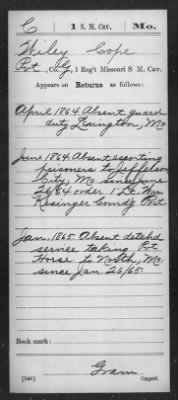 C | 1 S. M. Cav. | Mo.
Wiley Cope
Pvt, Co. G, 1 Reg't Missouri S. M. Cav.
Appears on Returns as follows:
April 1864 Absent guard
duty Lexington, Mo
June 1864. Absent escorting
prisoners to Jefferson
City, Mo since June
26/64 order 1 Lt Wm
Resinger Comdg Pvt
Jan. 1865. Absent detchd
service taking
Horse to North, Mo
since Jan 26/65
Book mark:
Gram
(546) Copyist.